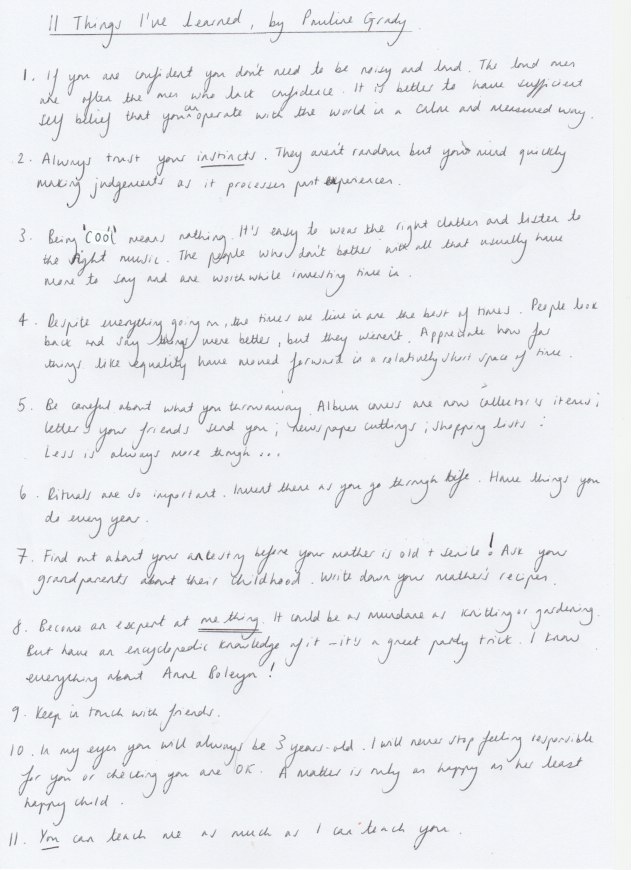 11 Things I've Learned, by Pauline Grady.
1. If you are confident you don't need to be noisy and loud. The loud ones
are often the ones who lack confidence. It is better to have sufficient
self belief that you can operate with the world in a calm and measured way.
2. Always trust your instincts. They aren't random but your mind quickly
making judgements as it processes past experiences.
3. Being 'cool' means nothing. It's easy to wear the right clothes and listen to
the right music. The people who don't bother with all that usually have
more to say and are worthwhile investing time in.
4. Despite everything going on, the times we live in are the best of times. People look
back and say things were better, but they weren't. Appreciate how far
things like equality have moved forward in a relatively short space of time.
5. Be careful about what you throw away. Album covers are now collector's items;
letters your friends send you; newspaper cuttings; shopping lists:
Less is always more though...
6. Rituals are so important. Invent these as you go through life. Have things you
do every year.
7. Find out about your ancestry before your mother is old + senile! Ask your
grandparents about their childhood. Write down your mother's recipes.
8. Become an expert at one thing. It could be as mundane as knitting or gardening.
But have an encyclopedic knowledge of it - it's a great party trick. I know
everything about Anne Boleyn!
9. Keep in touch with friends.
10. In my eyes you will always be 3 years-old. I will never stop feeling responsible
for you or checking you are OK. A mother is only as happy as her least
happy child.
11. You can teach me as much as I can teach you.